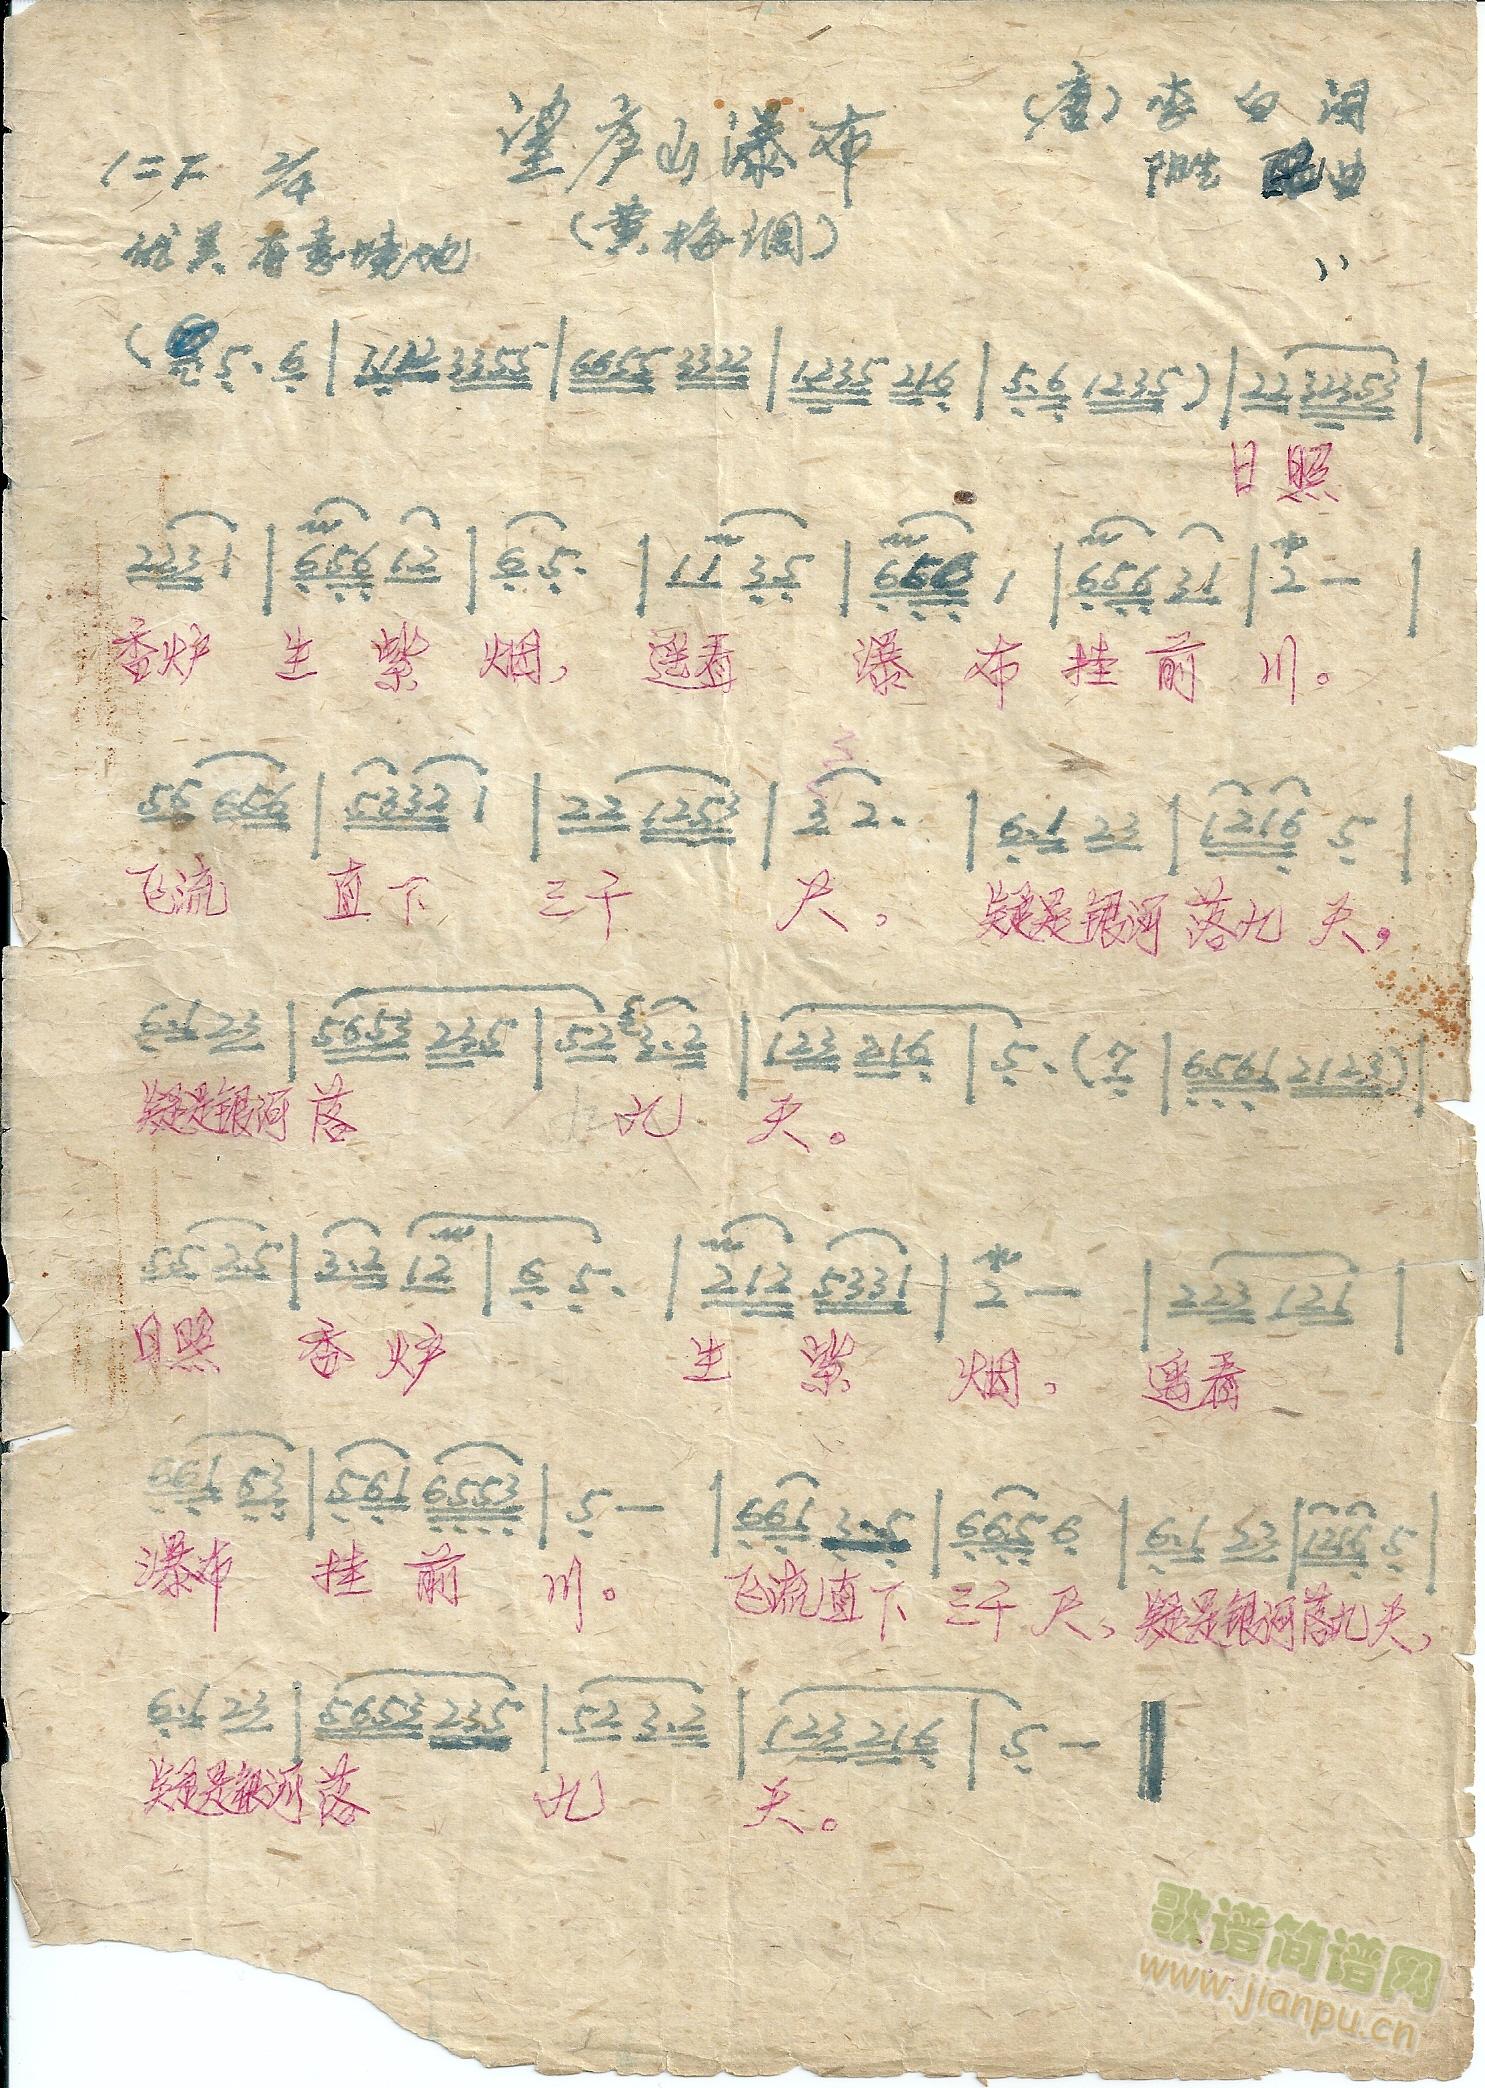 望庐山瀑布
(唐)李白词
1=F 2/4
曲
(黄梅调)
优美有意境地
5. 6 | 2122 3355 | 6655 3322 | 1235 216 | 5.6 1235) | 22 32353 |
日照
223 1 | 656 12 | 6 5. | 11 35 | 656 1 | 656 31 | 2 — |
香炉 生 紫 烟, 遥看 瀑 布 挂 前 川。
55 656 | 5332 1 | 22 1253 | 3 2. | 6.1 23 | 1216 5 |
飞流 直下 三千 尺, 疑是银河落九天,
6.1 23 | 5653 235 | 52 3.2 | 123 216 | 5. (7 | 6561 2123) |
疑是银河落 九 天。
55 2.5 | 3.2 12 | 6 5. | 212 5331 | 2 — | 223 121 |
日照 香炉 生 紫 烟, 遥看
661 53 | 561 6553 | 5 — | 661 3.5 | 665 6 | 6.1 23 | 1216 5 |
瀑布 挂前 川。 飞流直下 三千尺, 疑是银河落九天,
6.1 23 | 5653 235 | 52 3.2 | 123 216 | 5 — ‖
疑是银河落 九 天。
歌谱简谱网
www.jianpu.cn